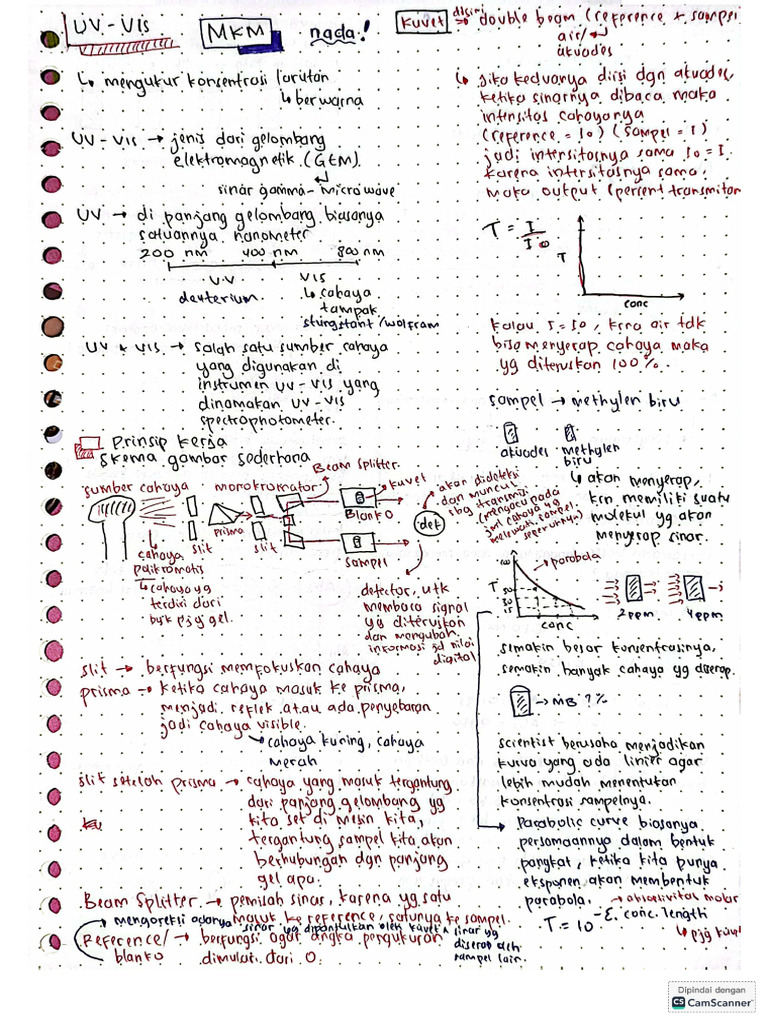 UV-Vis
MKM
nada!
↳ mengukur konsentrasi larutan
↳ berwarna
UV-Vis → jenis dari gelombang
elektromagnetik (GEM).
sinar gamma - Microwave
UV → di panjang gelombang biasanya
satuannya nanometer
200 nm 400 nm 800 nm
UV VIS
deuterium ↳ cahaya
tampak
stungstant/wolfram
UV + Vis → salah satu sumber cahaya
yang digunakan di
instrumen UV-Vis yang
dinamakan UV-Vis
spectrophotometer.
Prinsip kerja
Skema gambar sederhana
sumber cahaya
monokromator
Beam Splitter
kuvet
prisma
slit
slit
Blanko
sampel
det
cahaya
polikromatis
↳ cahaya yg
terdiri dari
byk pjg gel.
akan dideteksi
dan muncul
sbg transmisi
(mengacu pada
jml cahaya yg
melewati sampel
sepenuhnya)
detector, utk
membaca signal
yg diteruskan
dan mengubah
informasi jd nilai
digital
slit → berfungsi memfokuskan cahaya
prisma → ketika cahaya masuk ke prisma,
menjadi reflek atau ada penyebaran
jadi cahaya visible.
↳ cahaya kuning, cahaya
merah
slit setelah prisma → cahaya yang masuk tergantung
dari panjang gelombang yg
kita set di mesin kita,
tergantung sampel kita akan
berhubungan dgn panjang
gel apa.
Beam Splitter → pemisah sinar, karena yg satu
masuk ke reference, satunya ke sampel.
mengoreksi adanya sinar yg dipantulkan oleh kuvet & sinar yg
diserap oleh
sampel lain.
Reference/ → berfungsi agar angka pengukuran
blanko dimulai dari 0.
Kuvet diisi → double beam (reference + sampel
air/
akuades
↳ Jika keduanya diisi dgn akuades,
ketika sinarnya dibaca maka
intensitas cahayanya
(reference = I0) (sampel = I)
jadi intensitasnya sama I0 = I.
karena intensitasnya sama,
maka output (percent transmitan
T = I/I0
T
conc
kalau I = I0, krna air tdk
bisa menyerap cahaya maka
yg diteruskan 100%.
sampel → methylen biru
akuades methylen
biru
↳ akan menyerap,
krn memiliki suatu
molekul yg akan
menyerap sinar.
parabola
T
100
50
30
conc
2 ppm 4 ppm
semakin besar konsentrasinya,
semakin banyak cahaya yg diserap.
→ MB ?%
scientist berusaha menjadikan
kurva yang ada linier agar
lebih mudah menentukan
konsentrasi sampelnya.
Parabolic curve biasanya
persamaannya dalam bentuk
pangkat, ketika kita punya
eksponen akan membentuk
parabola.
absorptivitas molar
T = 10^-ε. conc. length
↳ pjg kuvet
Dipindai dengan
CS CamScanner